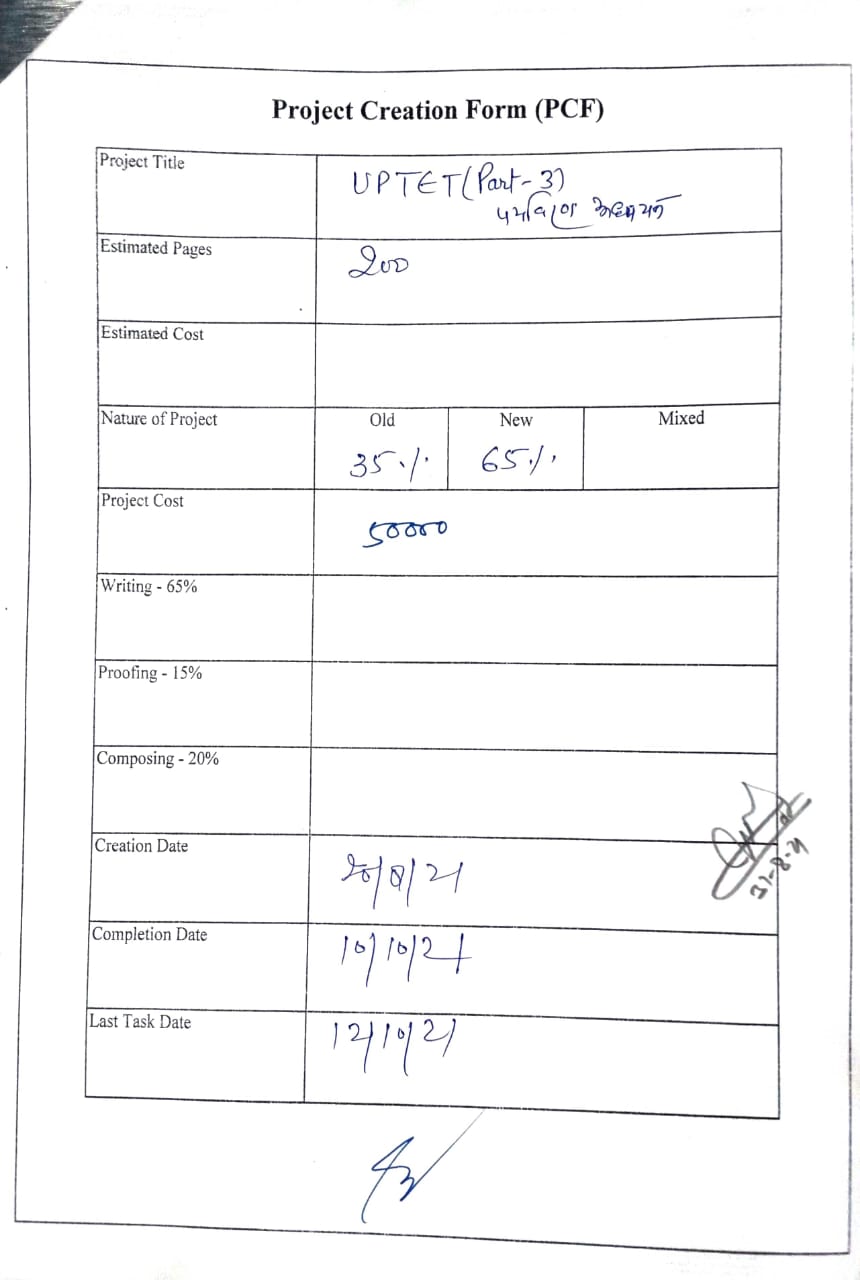 Project Creation Form (PCF)
Project Title
UPTET (Part-3)
पर्यावरण अध्ययन
Estimated Pages
200
Estimated Cost
Nature of Project Old New Mixed
35% 65%
Project Cost
50000
Writing - 65%
Proofing - 15%
Composing - 20%
Creation Date
/8/21
31-8-21
Completion Date
10/10/21
Last Task Date
12/10/21